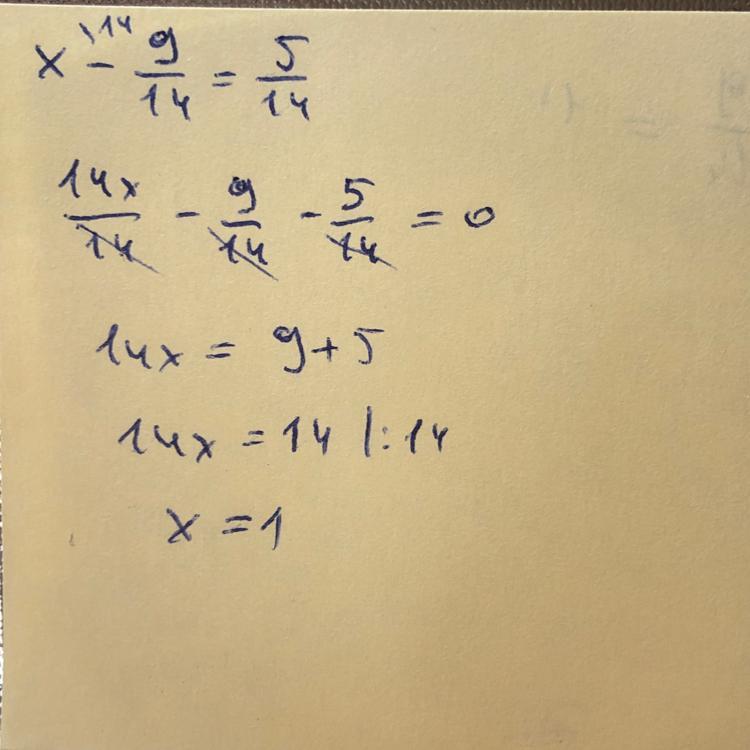 x\14 - 9/14 = 5/14
14x/14 - 9/14 - 5/14 = 0
14x = 9+5
14x = 14 |:14
x = 1